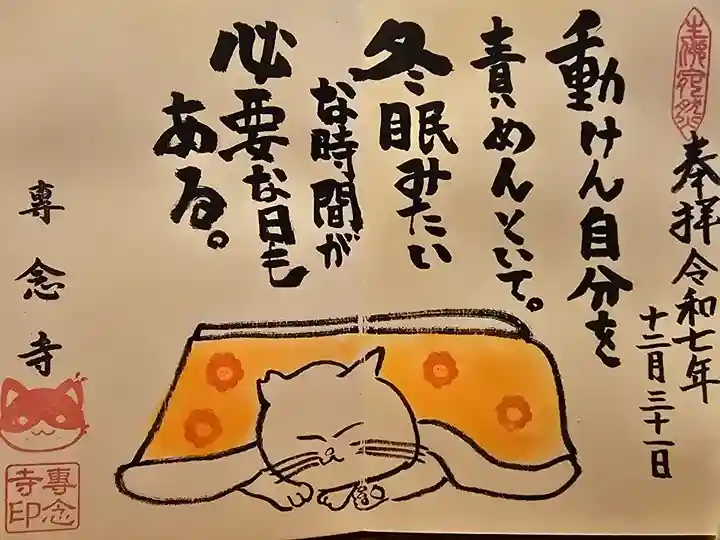 奉拝
令和七年
十二月三十一日
動けん自分を
責めんといて。
冬眠みたい
な時間が
必要な日も
ある。
專念寺
專念
寺印